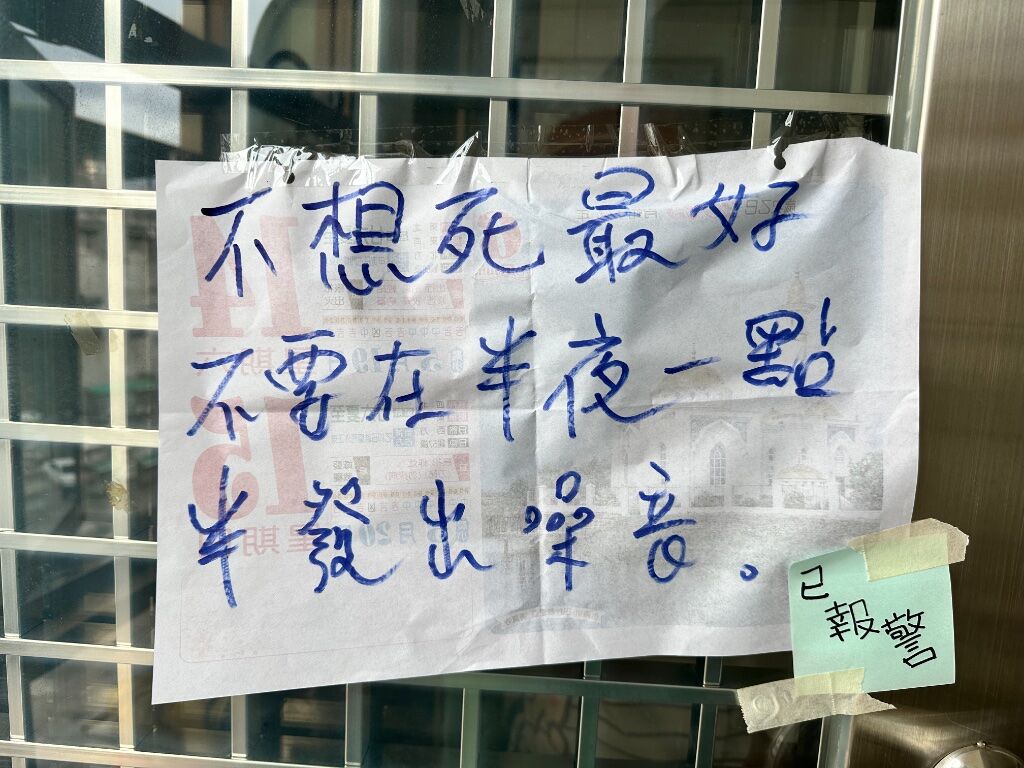 不想死最好
不要在半夜一點
半發出噪音。
已
報警